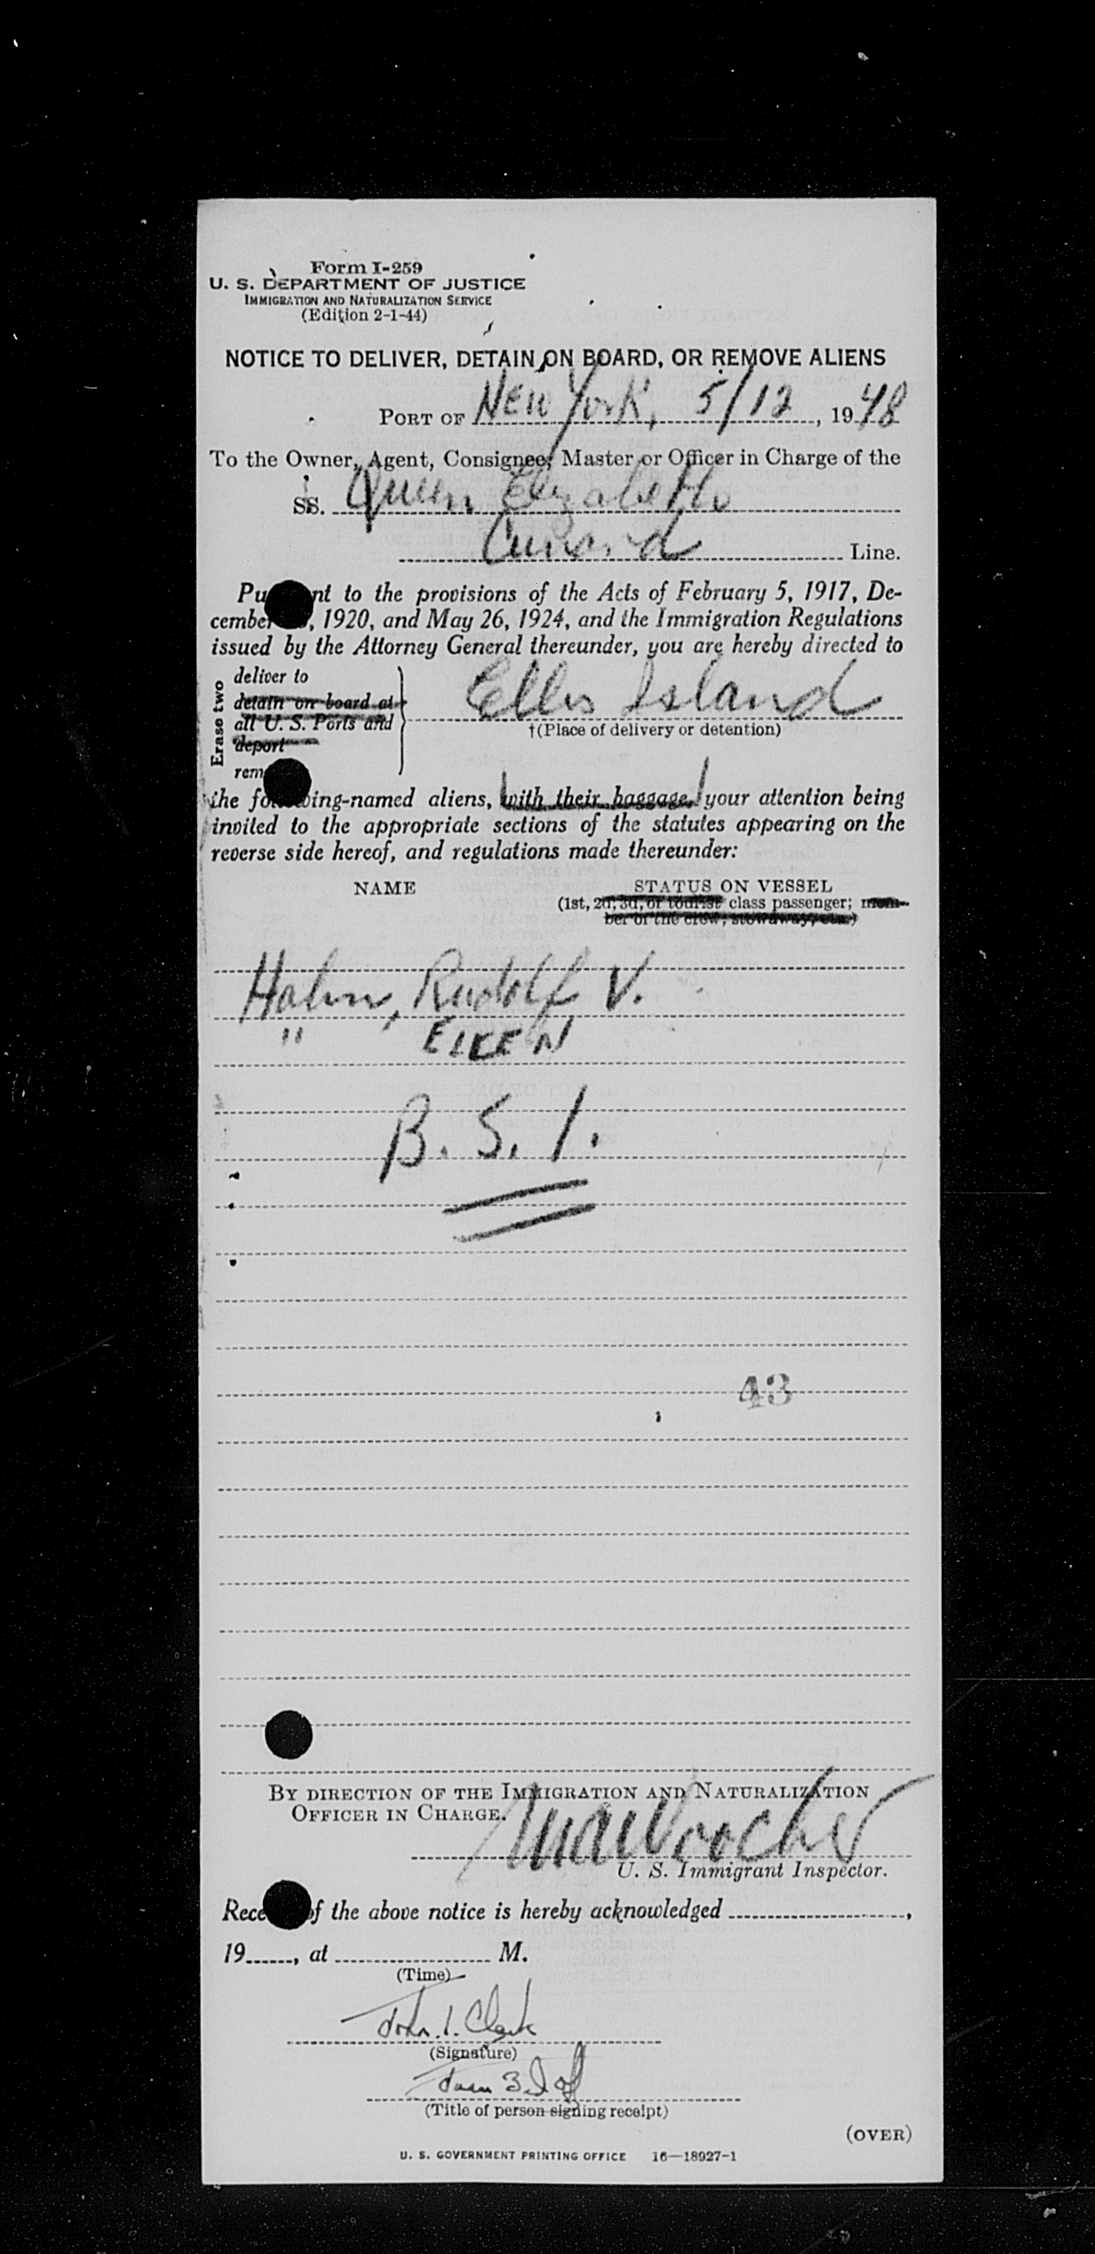 Form I-259
U. S. DEPARTMENT OF JUSTICE
IMMIGRATION AND NATURALIZATION SERVICE
(Edition 2-1-44)
NOTICE TO DELIVER, DETAIN ON BOARD, OR REMOVE ALIENS
PORT OF New York, 5/12, 1948
To the Owner, Agent, Consignee, Master or Officer in Charge of the
SS. Queen Elizabeth
Cunard Line.
Pu nt to the provisions of the Acts of February 5, 1917, De-
cember , 1920, and May 26, 1924, and the Immigration Regulations
issued by the Attorney General thereunder, you are hereby directed to
Erase two
deliver to
detain on board at
all U. S. Ports and
deport
rem
Ellis Island
†(Place of delivery or detention)
the following-named aliens, with their baggage, your attention being
invited to the appropriate sections of the statutes appearing on the
reverse side hereof, and regulations made thereunder:
NAME STATUS ON VESSEL
(1st, 2d, 3d, or tourist class passenger; mem-
ber of the crew; stowaway, etc.)
Hahn, Rudolf V.
" EILEEN
B. S. I.
43
BY DIRECTION OF THE IMMIGRATION AND NATURALIZATION
OFFICER IN CHARGE.
U. S. Immigrant Inspector.
Rece of the above notice is hereby acknowledged ,
19 , at M.
(Time)
John. I. Clark
(Signature)
(Title of person signing receipt)
(OVER)
U. S. GOVERNMENT PRINTING OFFICE 16—18927-1